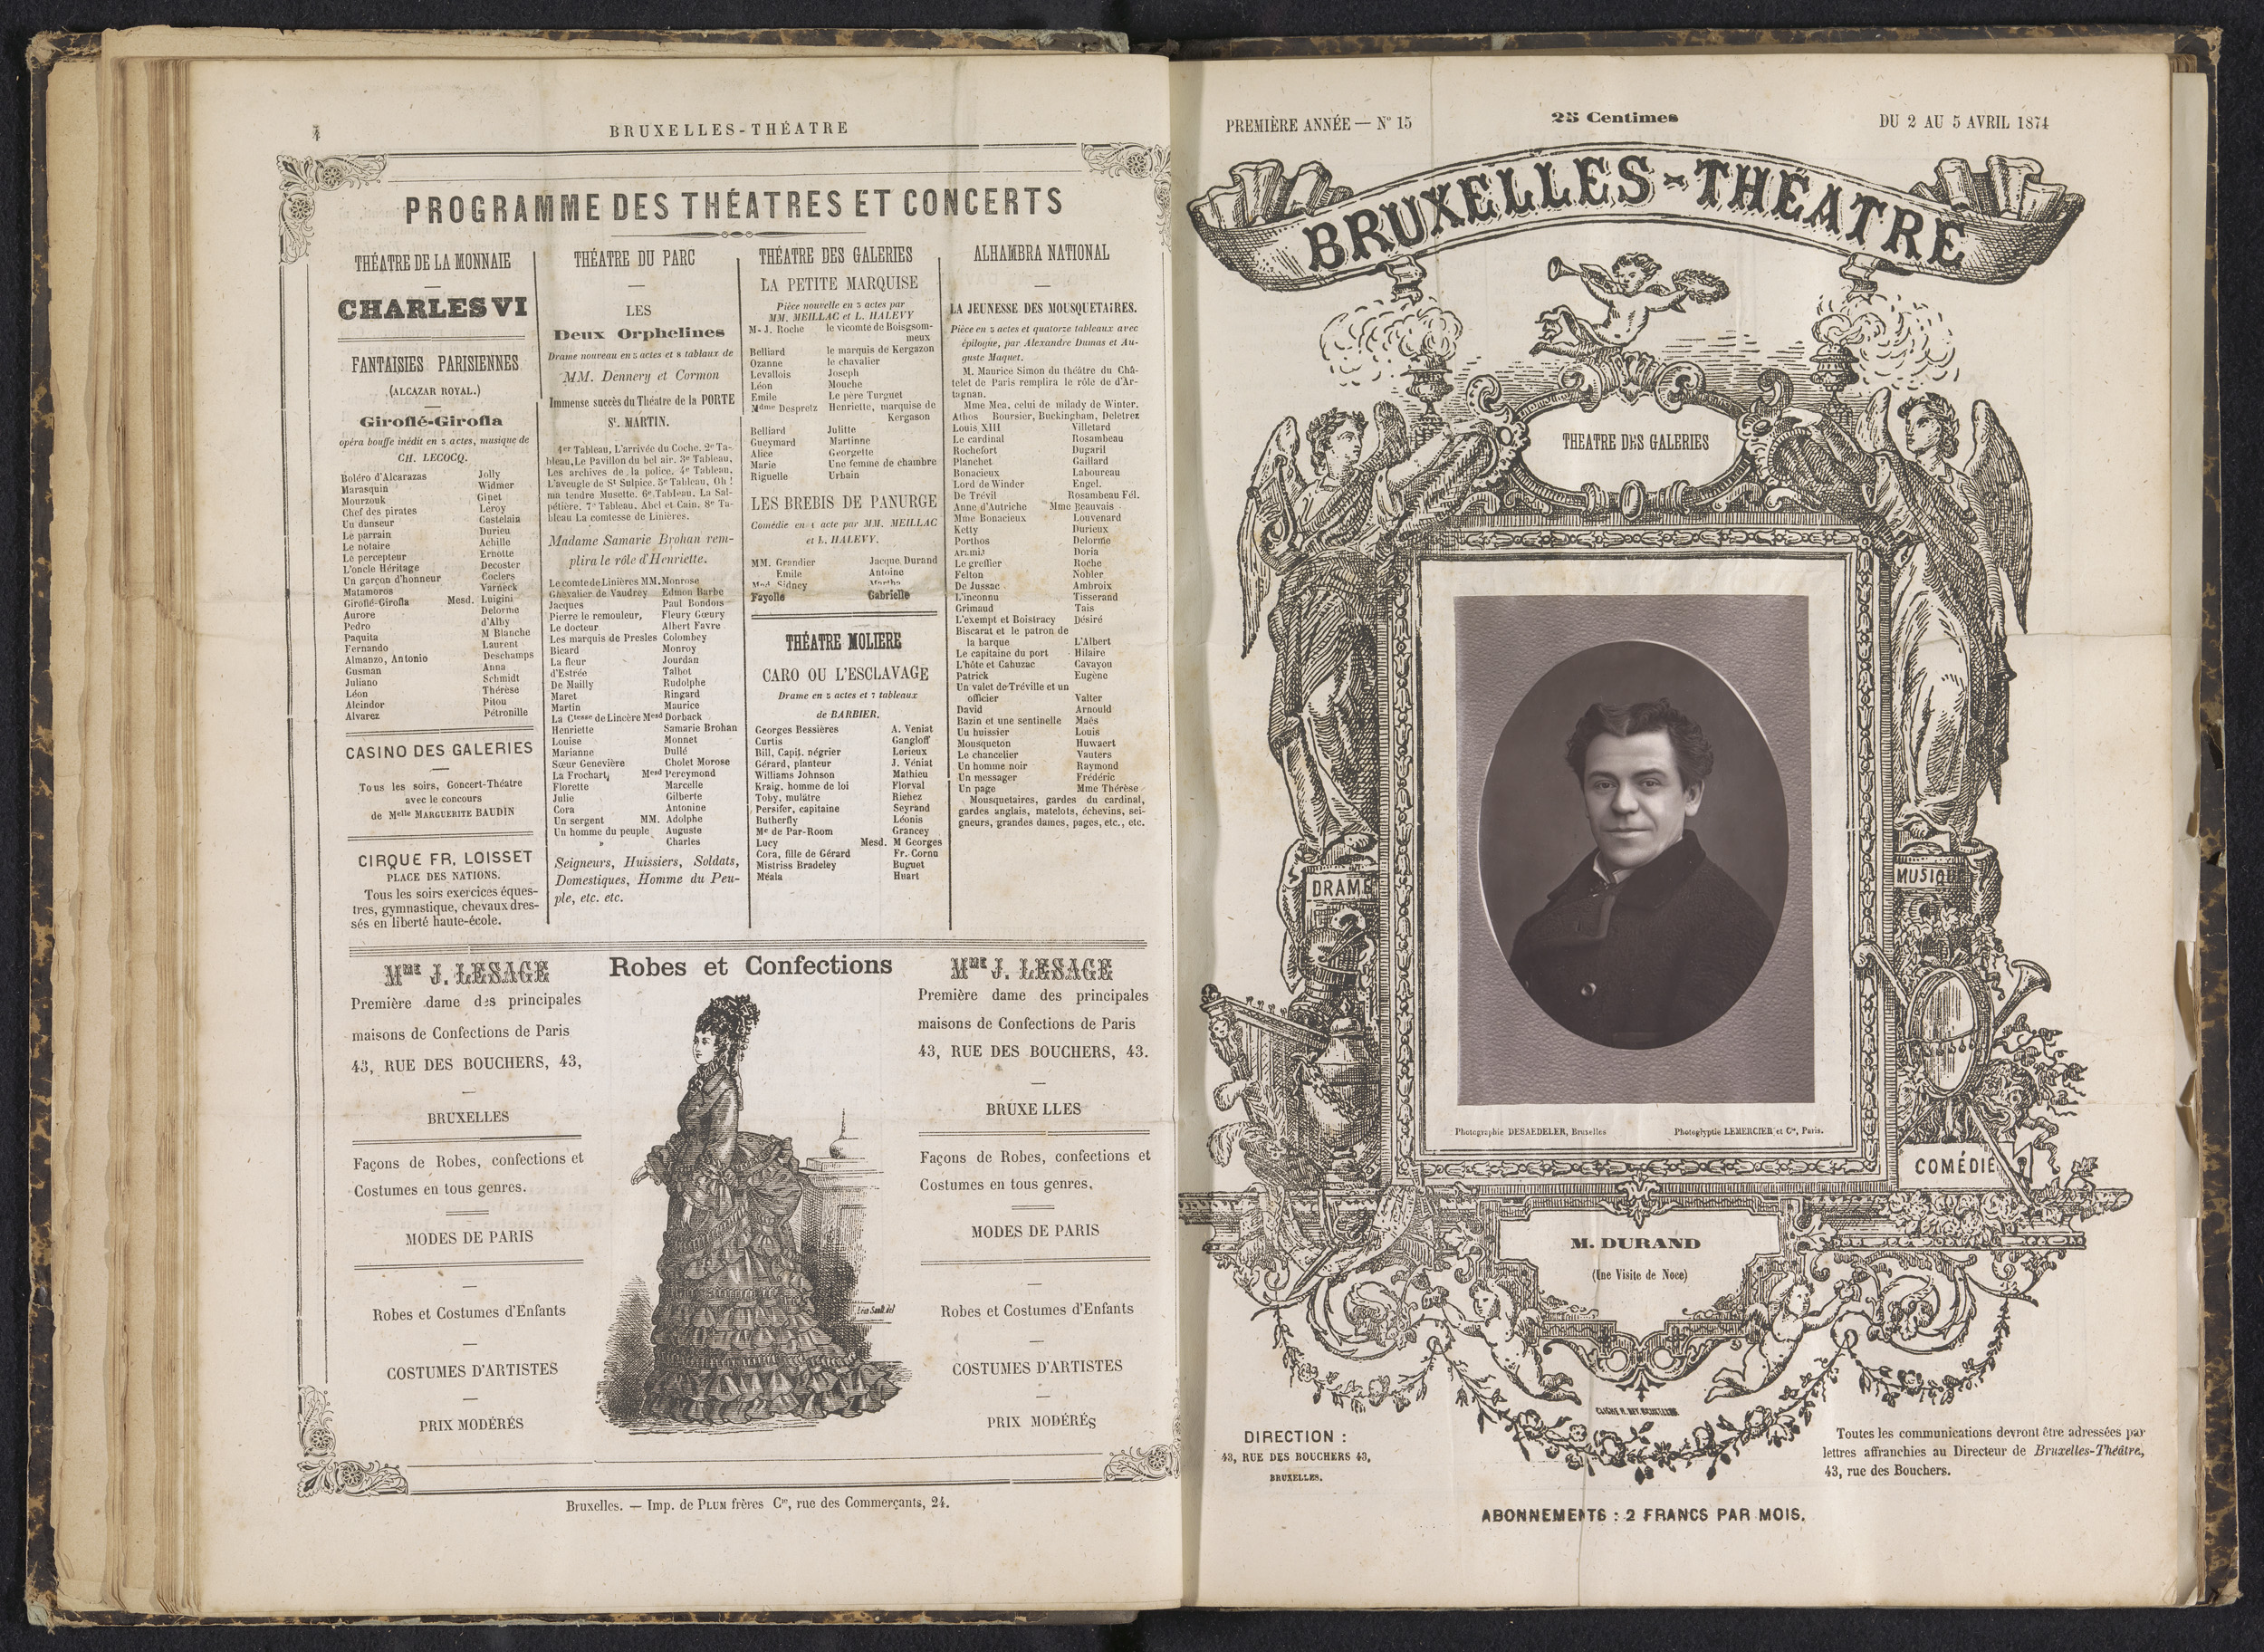 4
BRUXELLES-THÉATRE
PROGRAMME DES THÉATRES ET CONCERTS
THÉATRE DE LA MONNAIE
CHARLES VI
FANTAISIES PARISIENNES
(ALCAZAR ROYAL.)
Giroflé-Girofla
opéra bouffe inédit en 3 actes, musique de
CH. LECOCQ.
Boléro d'Alcarazas Jolly
Marasquin Widmer
Mourzouk Ginet
Chef des pirates Leroy
Un danseur Castelain
Le parrain Durieu
Le notaire Achille
Le percepteur Ernotte
L'oncle Héritage Decoster
Un garçon d'honneur Coclers
Matamoros Varneck
Giroflé-Girofla Mesd. Luigini
Aurore Delorme
Pedro d'Alby
Paquita M Blanche
Fernando Laurent
Almanzo, Antonio Deschamps
Gusman Anna
Juliano Schmidt
Léon Thérèse
Alcindor Pitou
Alvarez Pétronille
CASINO DES GALERIES
Tous les soirs, Concert-Théatre
avec le concours
de Melle MARGUERITE BAUDIN
CIRQUE FR, LOISSET
PLACE DES NATIONS.
Tous les soirs exercices éques-
tres, gymnastique, chevaux dres-
sés en liberté haute-école.
THÉATRE DU PARC
LES
Deux Orphelines
Drame nouveau en 5 actes et 8 tablaux de
MM. Dennery et Cormon
Immense succès du Théatre de la PORTE
St. MARTIN.
1er Tableau, L'arrivée du Coche. 2e Ta-
bleau, Le Pavillon du bel air. 3e Tableau,
Les archives de la police. 4e Tableau,
L'aveugle de St Sulpice. 5e Tableau, Oh !
ma tendre Musette. 6e Tableau. La Sal-
pétière. 7e Tableau. Abel et Cain. 8e Ta-
bleau La comtesse de Linières.
Madame Samarie Brohan rem-
plira le rôle d'Henriette.
Le comte de Linières MM. Monrose
Chevalier de Vaudrey Edmon Barbe
Jacques Paul Bondois
Pierre le remouleur, Fleury Gœury
Le docteur Albert Favre
Les marquis de Presles Colombey
Bicard Monroy
La fleur Jourdan
d'Estrée Talbot
De Mailly Rudolphe
Maret Ringard
Martin Maurice
La Ctesse de Lincère Mesd Dorback
Henriette Samarie Brohan
Louise Monnet
Marianne Dullé
Sœur Geneviève Cholet Morose
La Frochart, Mesd Percymond
Florette Marcelle
Julie Gilberte
Cora Antonine
Un sergent MM. Adolphe
Un homme du peuple Auguste
» Charles
Seigneurs, Huissiers, Soldats,
Domestiques, Homme du Peu-
ple, etc. etc.
THÉATRE DES GALERIES
LA PETITE MARQUISE
Pièce nouvelle en 3 actes par
MM. MEILLAC et L. HALEVY
M-J. Roche le vicomte de Boisgsom-
meux
Belliard le marquis de Kergazon
Ozanne le chavalier
Levallois Joseph
Léon Mouche
Emile Le père Turguet
Mdme Despretz Henriette, marquise de
Kergason
Belliard Julitte
Gueymard Martinne
Alice Georgette
Marie Une femme de chambre
Riguelle Urbain
LES BREBIS DE PANURGE
Comédie en 1 acte par MM. MEILLAC
et L. HALEVY.
MM. Grandier Jacque Durand
Emile Antoine
Med. Sidney Martha
Fayolle Gabrielle
THÉATRE MOLIERE
CARO OU L'ESCLAVAGE
Drame en 5 actes et 7 tableaux
de BARBIER.
Georges Bessières A. Veniat
Curtis Gangloff
Bill, Capit. négrier Lerieux
Gérard, planteur J. Véniat
Williams Johnson Mathieu
Kraig, homme de loi Florval
Toby, mulâtre Riehez
Persifer, capitaine Seyrand
Butherfly Léonis
Me de Par-Room Grancey
Lucy Mesd. M Georges
Cora, fille de Gérard Fr. Cornu
Mistriss Bradeley Buguet
Méala Huart
ALHAMBRA NATIONAL
LA JEUNESSE DES MOUSQUETAIRES.
Pièce en 5 actes et quatorze tableaux avec
épilogue, par Alexandre Dumas et Au-
guste Maquet.
M. Maurice Simon du théatre du Châ-
telet de Paris remplira le rôle de d'Ar-
tagnan.
Mme Mea, celui de milady de Winter.
Athos Boursier, Buckingham, Deletrez
Louis XIII Villetard
Le cardinal Rosambeau
Rochefort Dugaril
Planchet Gaillard
Bonacieux Laboureau
Lord de Winder Engel.
De Trévil Rosambeau Fél.
Anne d'Autriche Mme Beauvais
Mme Bonacieux Louvenard
Ketty Durieux
Porthos Delorme
Aramis Doria
Le greffier Roche
Felton Nobler
De Jussac Ambroix
L'inconnu Tisserand
Grimaud Tais
L'exempt et Boistracy Désiré
Biscarat et le patron de
la barque L'Albert
Le capitaine du port Hilaire
L'hôte et Cahuzac Cavayou
Patrick Eugène
Un valet de Tréville et un
officier Valter
David Arnould
Bazin et une sentinelle Maës
Un huissier Louis
Mousqueton Huwaert
Le chancelier Vauters
Un homme noir Raymond
Un messager Frédéric
Un page Mme Thérèse
Mousquetaires, gardes du cardinal,
gardes anglais, matelots, échevins, sei-
gneurs, grandes dames, pages, etc., etc.
Mme J. LESAGE
Première dame des principales
maisons de Confections de Paris
43, RUE DES BOUCHERS, 43,
BRUXELLES
Façons de Robes, confections et
Costumes en tous genres.
MODES DE PARIS
Robes et Costumes d'Enfants
COSTUMES D'ARTISTES
PRIX MODÉRÉS
Robes et Confections
Léon Sault del
Mme J. LESAGE
Première dame des principales
maisons de Confections de Paris
43, RUE DES BOUCHERS, 43.
BRUXE LLES
Façons de Robes, confections et
Costumes en tous genres.
MODES DE PARIS
Robes et Costumes d'Enfants
COSTUMES D'ARTISTES
PRIX MODÉRÉS
Bruxelles. — Imp. de PLUM frères Cie, rue des Commerçants, 24.
PREMIÈRE ANNÉE — N° 15
25 Centimes
DU 2 AU 5 AVRIL 1874
BRUXELLES-THÉATRE
THEATRE DES GALERIES
DRAME
MUSIQUE
Photographie DESAEDELER, Bruxelles
Photoglyptie LEMERCIER et Cie, Paris.
COMÉDIE
M. DURAND
(Une Visite de Noce)
DIRECTION :
43, RUE DES BOUCHERS 43,
BRUXELLES.
Toutes les communications devront être adressées par
lettres affranchies au Directeur de Bruxelles-Théâtre,
43, rue des Bouchers.
ABONNEMENTS : 2 FRANCS PAR MOIS.